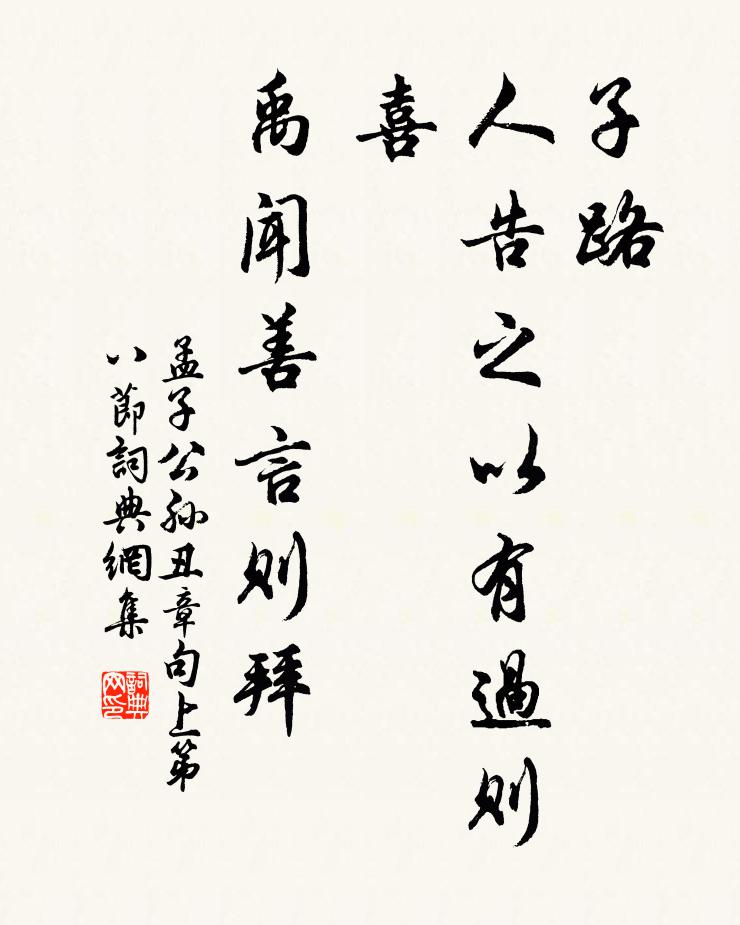 子路
人告之以有過則
喜
禹聞善言則拜
孟子公孫丑章句上第
八節詞典網集
詞典
网印